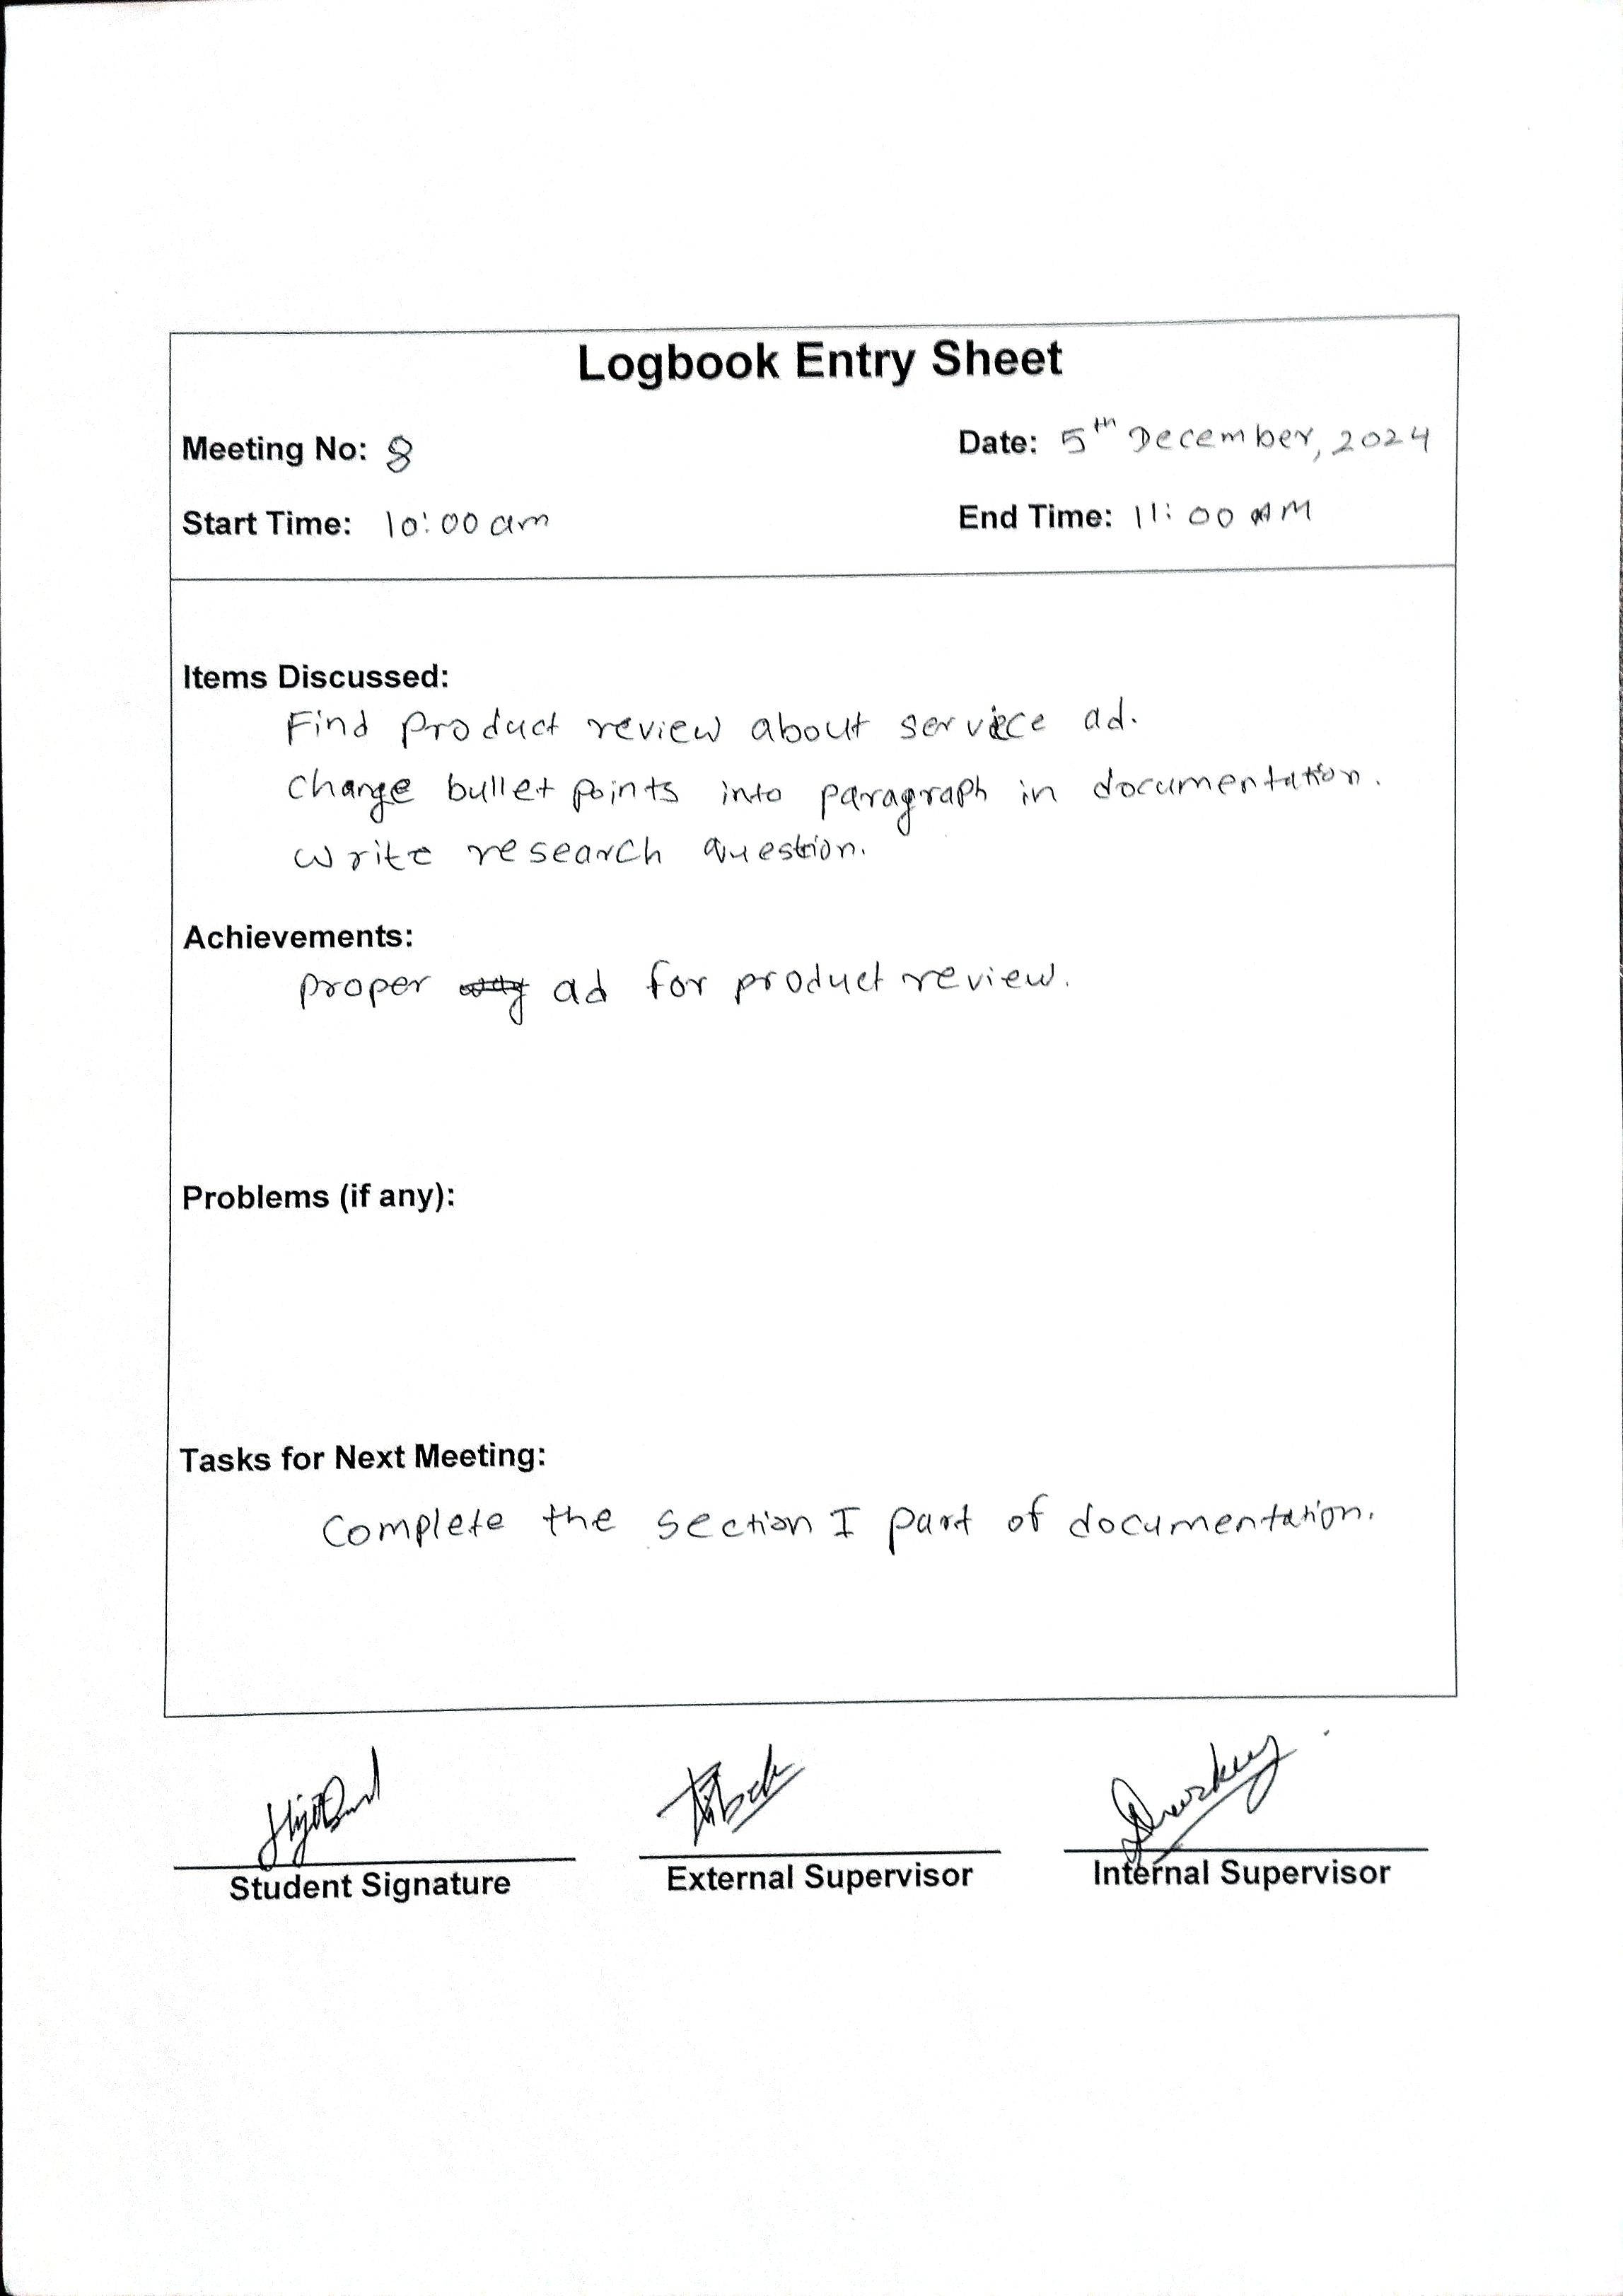 Logbook Entry Sheet
Meeting No: 8 Date: 5th December, 2024
Start Time: 10:00 am End Time: 11:00 AM
Items Discussed:
Find product review about service ad.
Change bullet points into paragraph in documentation.
Write research question.
Achievements:
proper ad for product review.
Problems (if any):
Tasks for Next Meeting:
Complete the section I part of documentation.
Student Signature External Supervisor Internal Supervisor